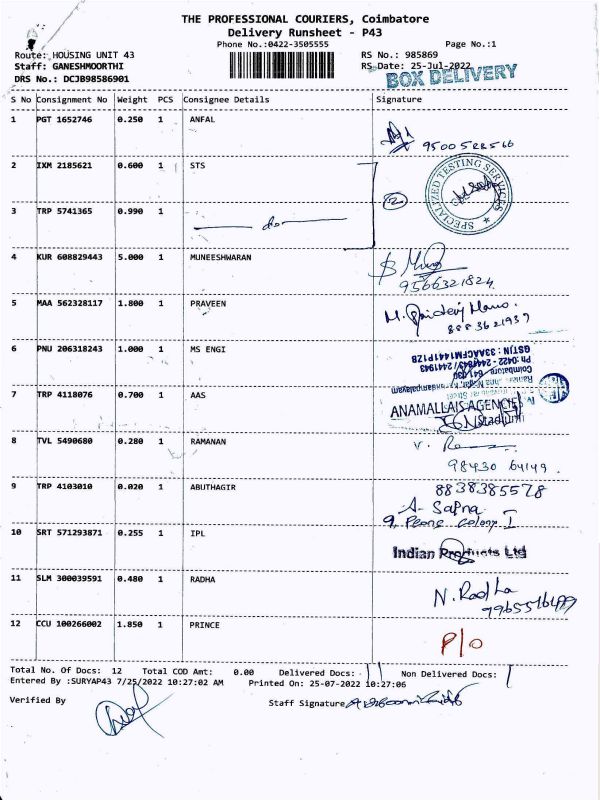 THE PROFESSIONAL COURIERS, Coimbatore
Delivery Runsheet - P43
Phone No.:0422-3505555 Page No.:1
Route: HOUSING UNIT 43 RS No.: 985869
Staff: GANESHMOORTHI RS Date: 25-Jul-2022
DRS No.: DCJB98586901 BOX DELIVERY
S No Consignment No Weight PCS Consignee Details Signature
1 PGT 1652746 0.250 1 ANFAL
2 IXM 2185621 0.600 1 STS
SPECIALIZED TESTING SERVICES
3 TRP 5741365 0.990 1 do 2
4 KUR 608829443 5.000 1 MUNEESHWARAN
9566321824
5 MAA 562328117 1.800 1 PRAVEEN
6 PNU 206318243 1.000 1 MS ENGI
GSTIN: 33AACFM1441P1ZB
Coimbatore
7 TRP 4118076 0.700 1 AAS
ANAMALLAIS AGENCIES
8 TVL 5490680 0.280 1 RAMANAN
98430 64149
9 TRP 4103010 0.020 1 ABUTHAGIR
8838385578
A. Sapna
10 SRT 571293871 0.255 1 IPL
Indian Products Ltd
11 SLM 300039591 0.480 1 RADHA
N. Radha
12 CCU 100266002 1.850 1 PRINCE
P/O
Total No. Of Docs: 12 Total COD Amt: 0.00 Delivered Docs: 11 Non Delivered Docs: 1
Entered By :SURYAP43 7/25/2022 10:27:02 AM Printed On: 25-07-2022 10:27:06
Verified By Staff Signature